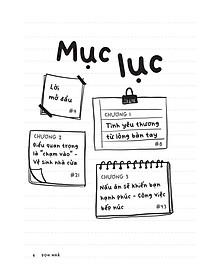 Mục
lục
Lời
mở đầu
#4
CHƯƠNG 1
Tình yêu thương
từ lòng bàn tay
#8
CHƯƠNG 2
Điều quan trọng
là "chạm vào" -
Vệ sinh nhà cửa
#21
CHƯƠNG 3
Nấu ăn sẽ khiến bạn
hạnh phúc - Công việc
bếp núc
#43
DỌN NHÀ